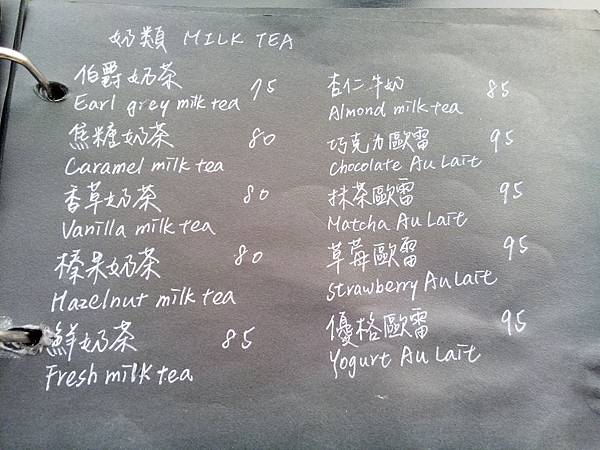 奶類 MILK TEA
伯爵奶茶 75
Earl grey milk tea
焦糖奶茶 80
Caramel milk tea
香草奶茶 80
Vanilla milk tea
榛果奶茶 80
Hazelnut milk tea
鮮奶茶 85
Fresh milk tea
杏仁牛奶 85
Almond milk tea
巧克力歐蕾 95
Chocolate Au Lait
抹茶歐蕾 95
Matcha Au Lait
草莓歐蕾 95
Strawberry Au Lait
優格歐蕾 95
Yogurt Au Lait